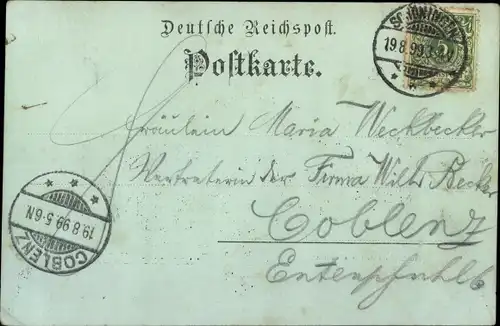 Deutsche Reichspost.
Postkarte.
19.8.99
Fräulein Maria Weckbecker
Vertreterin der Firma Wilh. Becker
Coblenz
Entenpfuhl
19.8.99.5-6N
COBLENZ